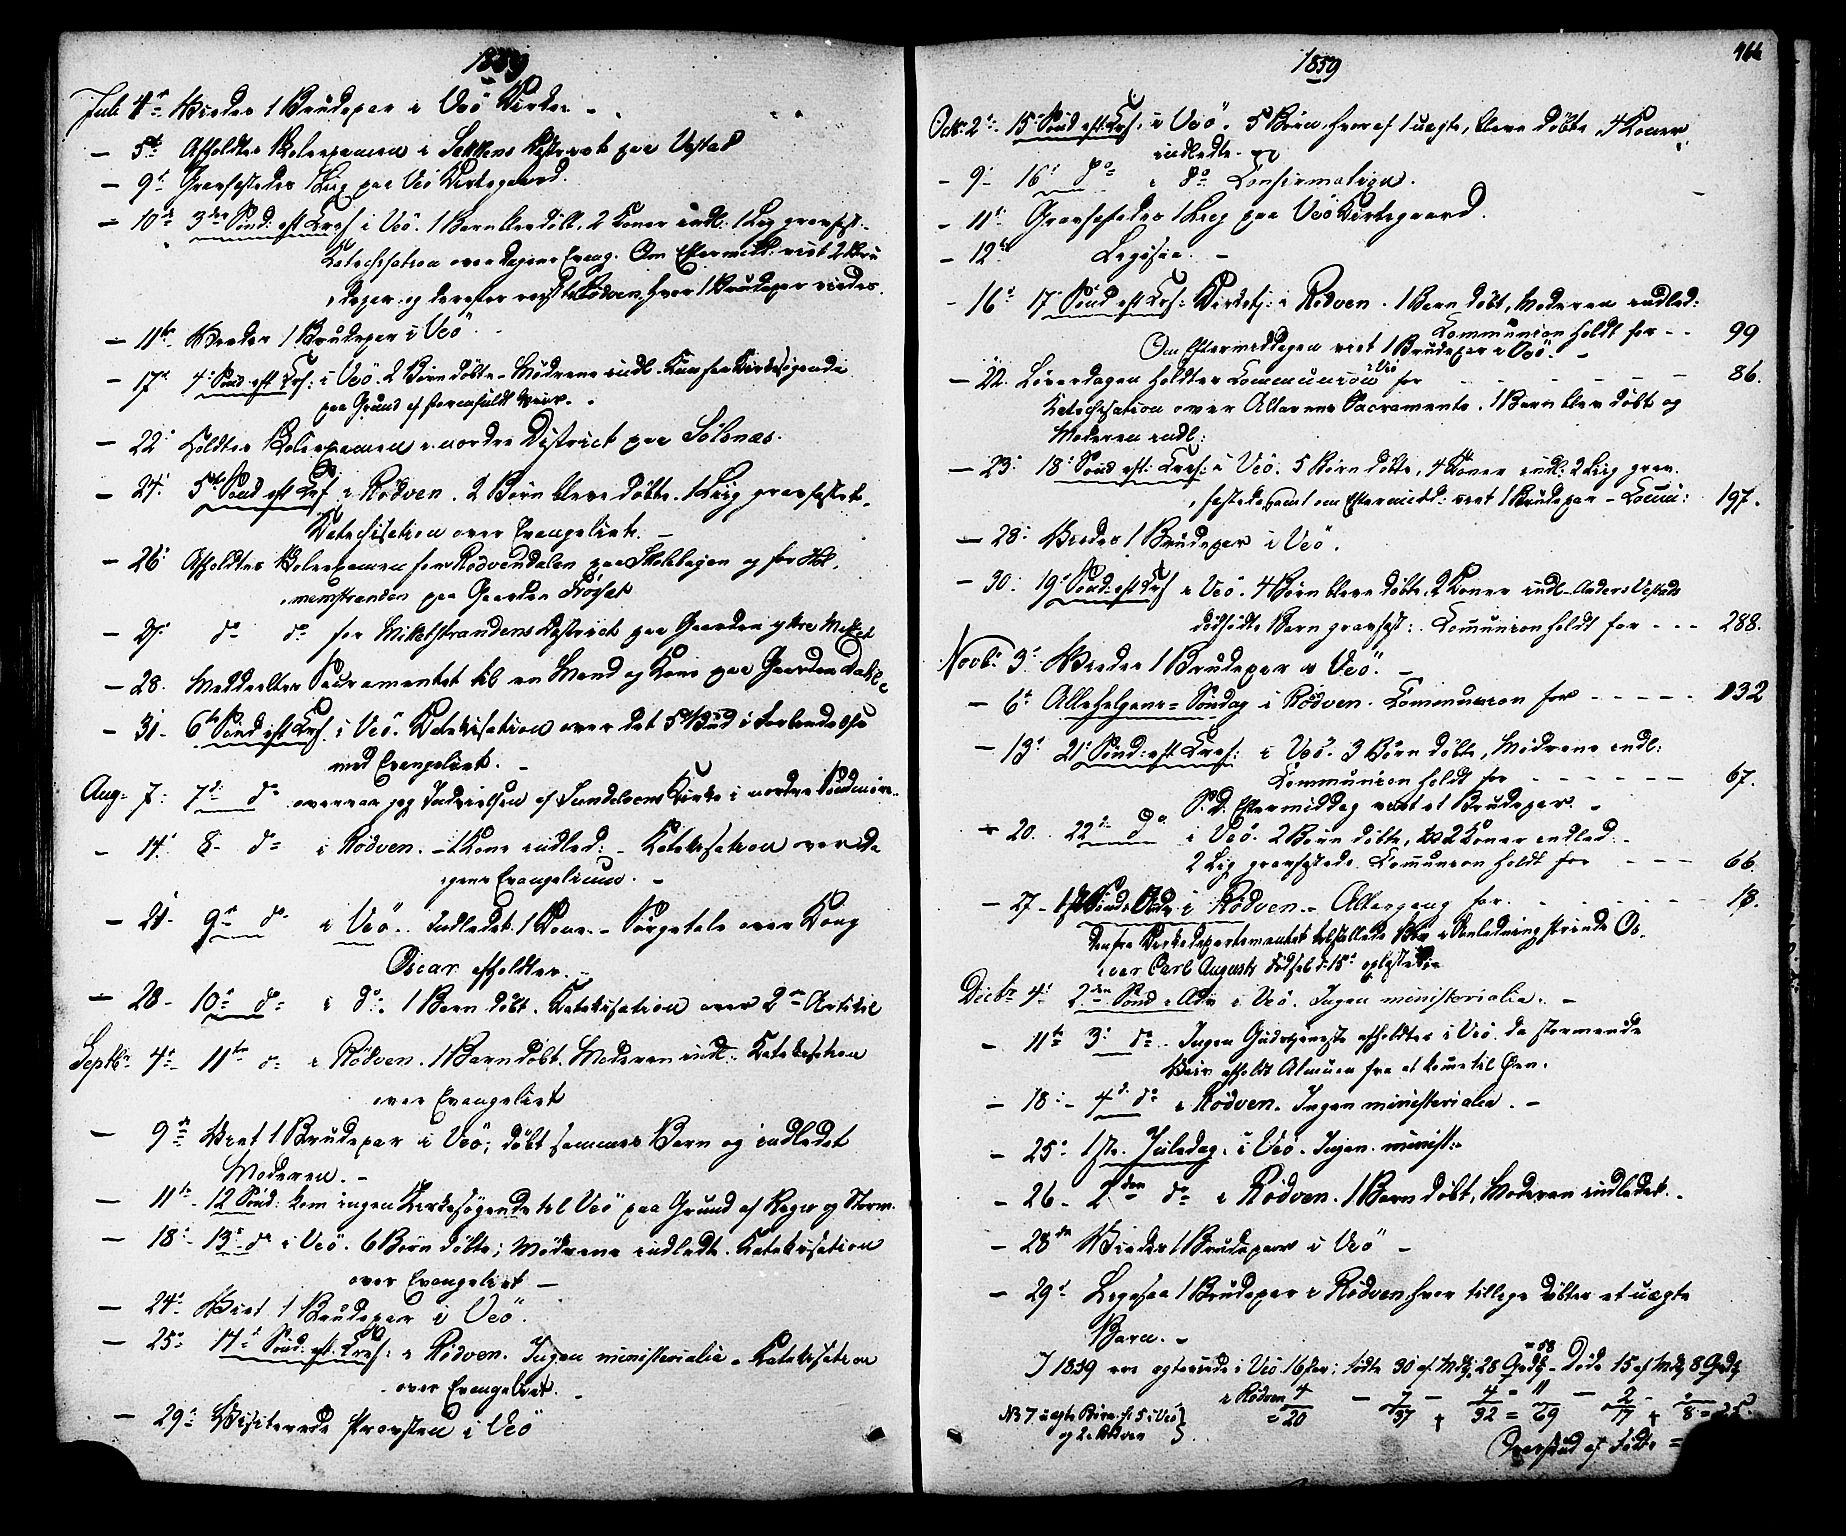 1859
Juli 4de Viedes 1 Brudepar i Veö Kirke.
— 5te Afholdtes Skoleexamen i Sekkens District paa Vestad
— 9de Gravfæstedes 1 Liig paa Veö Kirkegaard.
— 10de 3die Sönd: eft Tref i Veö. 1 Barn blev döbt, 2 Koner indl: 1 Liig gravfæst.
Katechisation over Dagens Evang. Om Eftermidd: viet 2 Bru
depar og derefter reist til Rödven, hvor 1 Brudepar viedes.
— 11te Viedes 1 Brudepar i Veö.
— 17de 4de Sönd. eft Tref: i Veö. 2 Börn döbte. Mödrene indl. Kun faa Kirkesögende
paa Grund af stormfuldt Veir.
— 22de Holdtes Skoleexamen i nordre District paa Sölsnæs.
— 24de 5te Sönd eft Tref i Rödven. 2 Börn bleve döbte. 1 Liig gravfæstet.
Katechisation over Evangeliet. —
— 26de Afholdtes Skoleexamen for Rödvendalen paa Skolebygen og for Hol,
menstranden paa Gaarden
— 27de do do for Mittetstrandens District paa Gaarden ytre Mittet
— 28. Meddeeltes Sacramentet til en Mand og Kone paa Gaarden
— 31. 6te Sönd eft Tref. i Veö. Katekisation over det 5te Bud i Forbindelse
med Evangeliet. —
Aug: 7: 7de do overvar jeg Indvielsen af Kirke i nordre Söndmöre.
— 14. 8. do i Rödven. — 1 Kone indled: — Katekisation over Da
gens Evangelium. —
— 21. 9de do i Veö. Indledet 1 Kone. — Sörgetale over Kong
Oscar afholdtes. —
— 28. 10de do i do. 1 Barn döbt. Katekisation over 2den Artikel
Septbr 4de 11te do i Rödven. 1 Barn döbt. Moderen indl: Katekisation
over Evangeliet
— 9de Viet 1 Brudepar i Veö; döbt sammes Barn og indledet
Moderen. —
— 11te 12 Sönd: kom ingen Kirkesögende til Veö paa Grund af Regn og Storm.
— 18de 13de do i Veö. 6 Börn döbte; Mödrene indledt. Katekisation
over Evangeliet —
— 24de Viet 1 Brudepar i Veö.
— 25de 14de Sönd. eft. Tref: i Rödven. Ingen ministerialia. Katekisation
over Evangeliet. —
— 29de Visiterede Provsten i Veö
1859
466
Octbr 2den 15de Sönd eft: Tref: i Veö. 5 Börn, hvoraf 1 uægte, bleve döbte. 4 Koner
indledte.
— 9. 16de do i do Confirmation.
— 11te Gravfæstedes 1 Liig paa Veö Kirkegaard.
— 12te Ligesaa. —
— 16de 17de Sönd eft Tref: Kirketj: i Rödven. 1 Barn döbt, Moderen indled:
Communion holdt for — — 99
Om Eftermiddagen viet 1 Brudepar i Veö. —
— 22. Löverdagen holdtes Communion i Veö for — — — 86.
Katechisation over Alterens Sacramente. 1 Barn blev döbt og
Moderen indl:
— 23de 18de Sönd eft: Tref: i Veö. 5 Börn döbte, 4 Koner indl: 2 Liig grav,
fæstede, samt om Eftermidd: viet 1 Brudepar — Comm: 197.
— 28de Viedes 1 Brudepar i Veö.
— 30. 19de Sönd: eft Tref i Veö. 4 Börn bleve döbte, 2 Koner indl. Anders Vestads
dödfödte Barn gravfæst: Communion holdt for — — — 288.
Novbr 3de Viedes 1 Brudepar i Veö. —
— 6te Allehelgens-Söndag i Rödven. Communion for — — — — 132
— 13de 21de Sönd: eft Tref: i Veö. 3 Börn döbte, Mödrene indl:
Communion holdt for — — — — — — 67.
S. D. Eftermiddag viet et Brudepar. —
— 20. 22de do i Veö. 2 Börn döbte, 2 Koner indled.
2 Lig gravfæstede. Communion holdt for — — — 66.
— 27. 1ste Sönd: i Adv. i Rödven. — Altergang for — — — 18.
Den fra Kirkedepartementet tilstillede Bön i Anledning Prinds Os,
car Carl Augusts Födsel d: 15de oplæstes.
Decbr 4de 2den Sönd i Adv i Veö. Ingen ministerialia. —
— 11te 3de do Ingen Gudstjeneste afholdtes i Veö, da stormende
Veir afholdt Almuen fra at komme til Öen.
— 18de 4de do i Rödven. Ingen ministerialia. —
— 25de 1ste Juledag i Veö. Ingen minist:
— 26. 2den do i Rödven. 1 Barn döbt, Moderen indledet. —
— 28de Viedes 1 Brudepar i Veö —
— 29de Ligesaa 1 Brudepar i Rödven, hvor tillige döbtes et uægte
Barn. —
= 58
I 1859 ere egteviede i Veö 16 Par; födte 30 af Mdk; 28 Qvdk. — Döde 15 af Mdk 8 Qvdk
i Rödven 4 — 7 — 4 = 11 — 2 —
= 20 37 + 32 = 69 17 + 8 = 25.
NB 7 uægte Börn, h: 5 i Veö
og 2 i Rödven
Overskud af Födte =